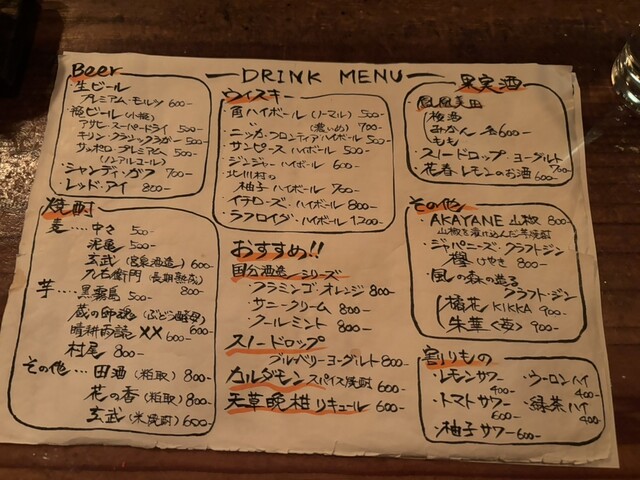 DRINK MENU
Beer
・生ビール
プレミアム・モルツ 600-
・瓶ビール(小瓶)
アサヒ・スーパードライ 500-
キリン・クラシックラガー 500-
サッポロ・プレミアム 500-
(ノンアルコール)
・シャンディ・ガフ 700-
・レッド・アイ 800-
焼酎
麦…中々 500-
泥亀 500-
玄武 600-
九右衛門(長期熟成) 800-
芋…黒霧島 500-
蔵の師魂(ぶどう酵母) 600-
晴耕雨読 ✕✕ 600-
村尾 800-
その他…田酒(粕取) 800-
花の香(粕取) 800-
玄武(米焼酎) 600-
ウイスキー
・角ハイボール(ノーマル) 500-
(濃いめ) 700-
・ニッカ・フロンティアハイボール 500-
・サンピース ハイボール 500-
・ジンジャーハイボール 600-
・北川村の
柚子ハイボール 700-
・イチローズ・ハイボール 800-
・ラフロイグ・ハイボール 1200-
おすすめ!!
国分酒造シリーズ
フラミンゴ・オレンジ 800-
サニークリーム 800-
クールミント 800-
スノードロップ
ブルベリーヨーグルト 800-
カルダモンスパイス焼酎 600-
天草晩柑リキュール 600-
果実酒
・鳳凰美田
みかん 各600-
もも
・スノードロップ ヨーグルト 700-
・花春レモンのお酒 600-
その他
・AKAYANE 山椒 800-
山椒を漬け込んだ芋焼酎
・ジャパニーズ・クラフトジン
欅 けやき 800-
・風の森の造る
クラフト・ジン
橘花 KIKKA 900-
朱華 900-
割りもの
・レモンサワー 400-
・ウーロンハイ 400-
・トマトサワー 600-
・緑茶ハイ 400-
・柚子サワー 600-